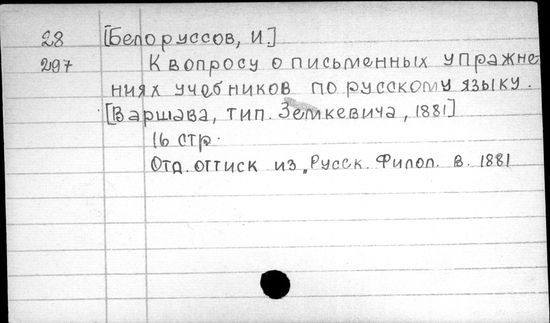 28 [Белоруссов, И]
297 К вопросу о письменных упражне-
ниях учебников по русскому языку.
[Варшава, тип. Земкевича, 1881]
16 стр.
Отд. оттиск из „Русск. Филол. в. 1881